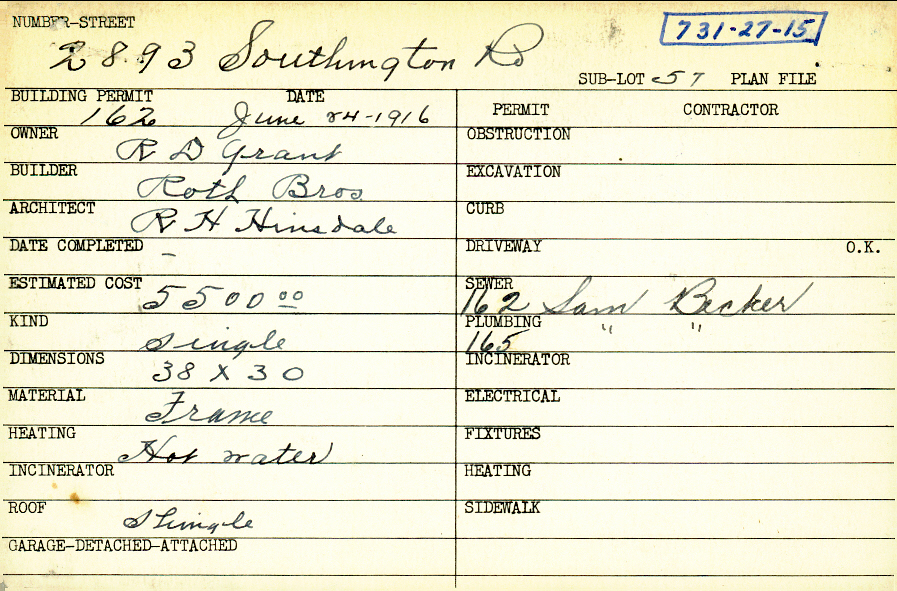 NUMBER-STREET
731-27-15
2893 Southington Rd
SUB-LOT 57 PLAN FILE
BUILDING PERMIT DATE
162 June 24-1916
OWNER
R D Grant
BUILDER
Roth Bros
ARCHITECT
R H Hinsdale
DATE COMPLETED
-
ESTIMATED COST
5500 00
KIND
Single
DIMENSIONS
38 X 30
MATERIAL
Frame
HEATING
Hot water
INCINERATOR
ROOF
Shingle
GARAGE-DETACHED-ATTACHED
PERMIT CONTRACTOR
OBSTRUCTION
EXCAVATION
CURB
DRIVEWAY O.K.
SEWER
162 Sam Becker
PLUMBING " "
165
INCINERATOR
ELECTRICAL
FIXTURES
HEATING
SIDEWALK